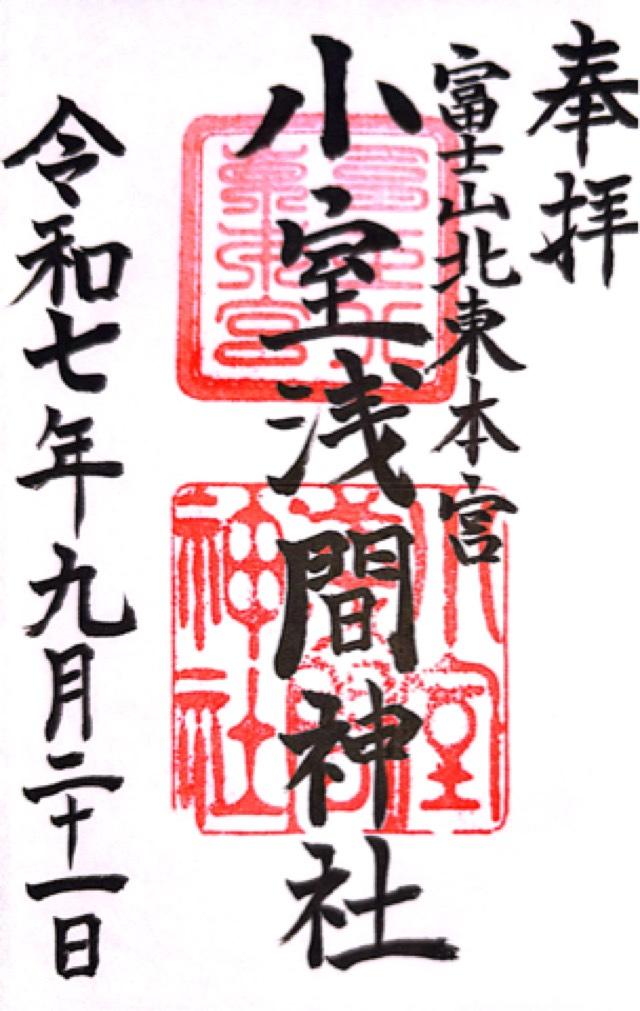 奉拝
富士山北東本宮
小室浅間神社
令和七年九月二十一日
小室
浅間
神社